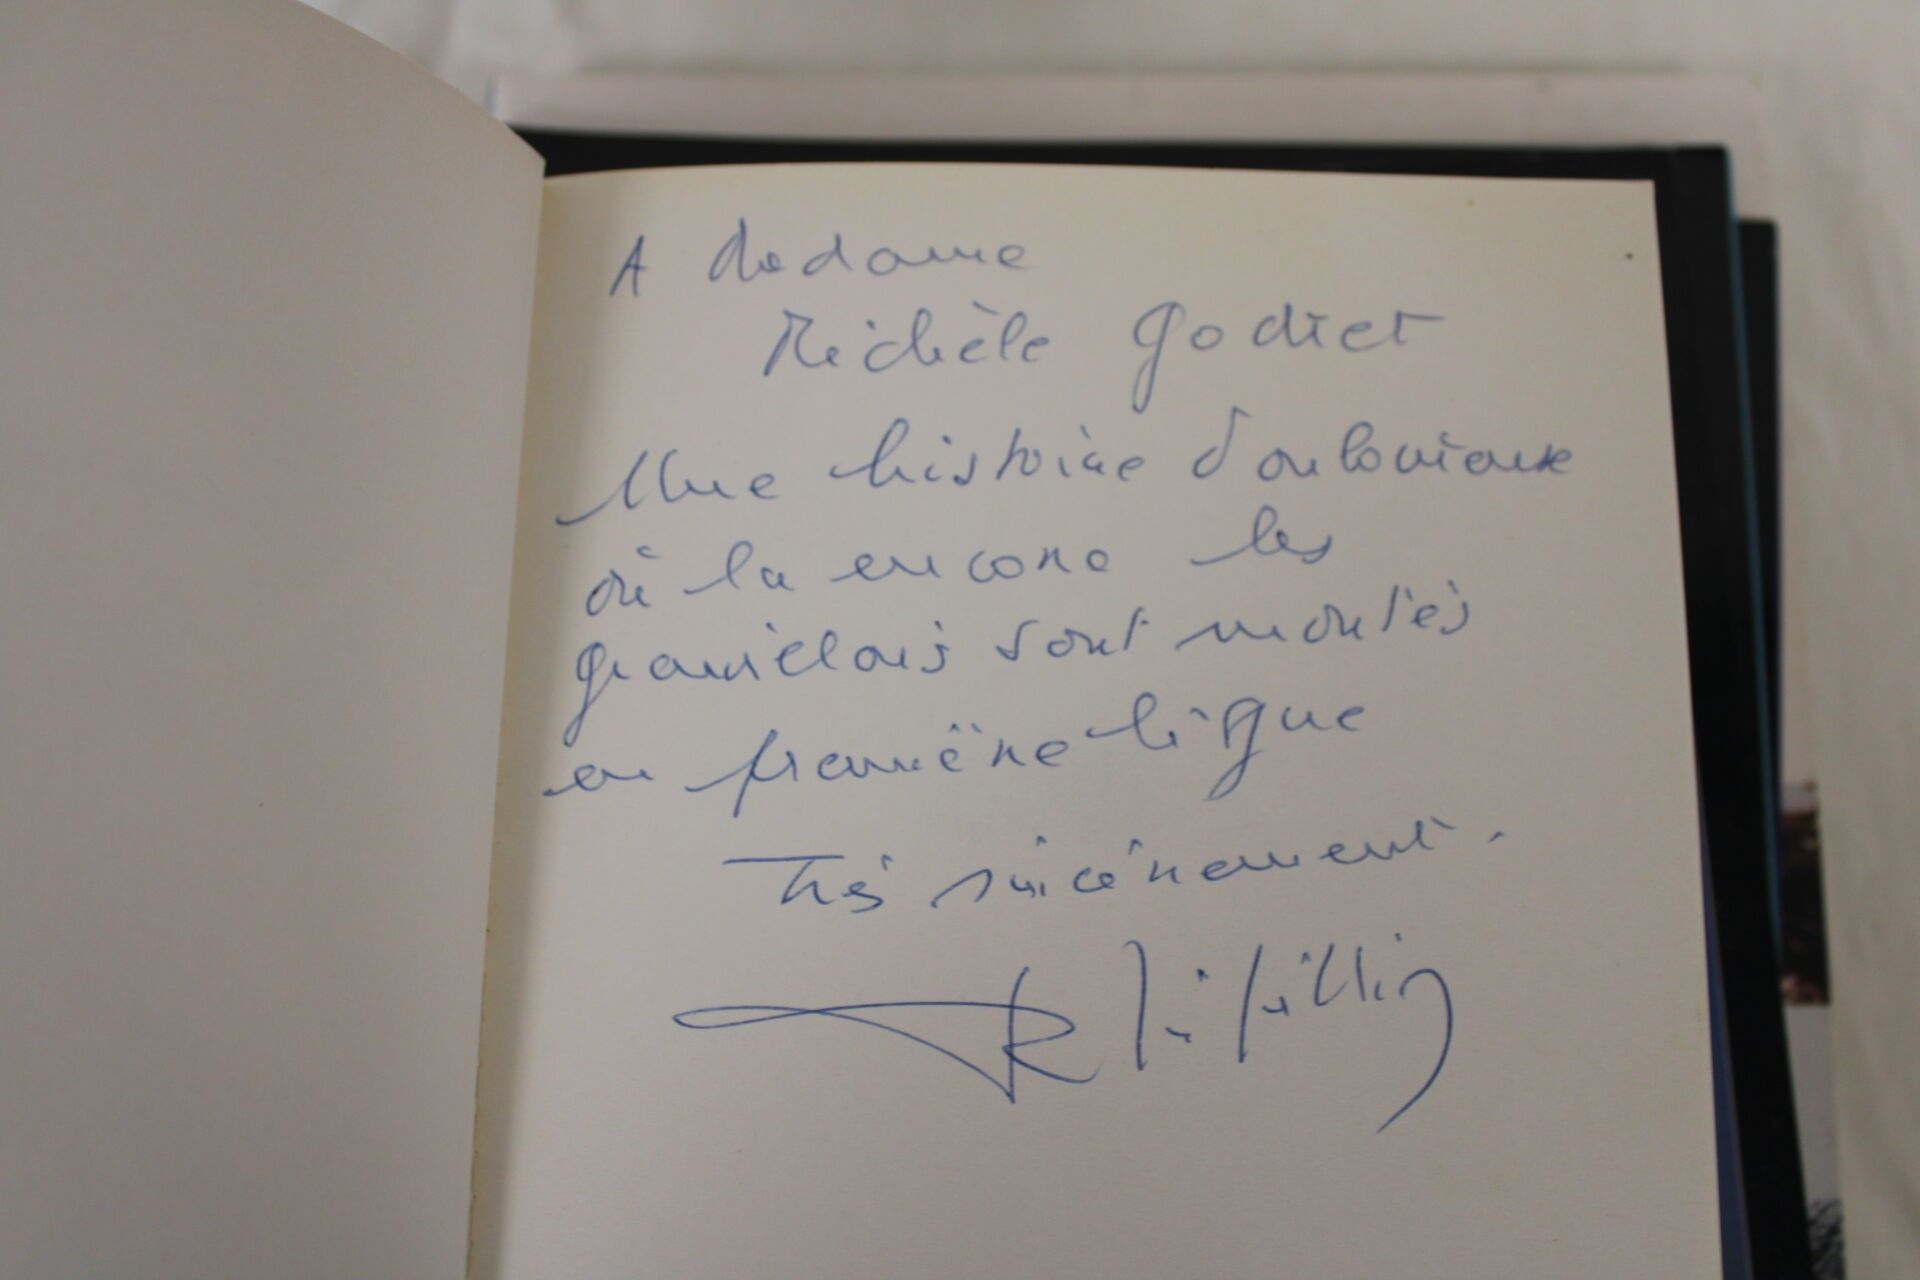 A Madame
Michèle Godret
Une histoire d'outouriaux
où la encore les
granvillais sont montés
en première ligne
Très sincèrement.